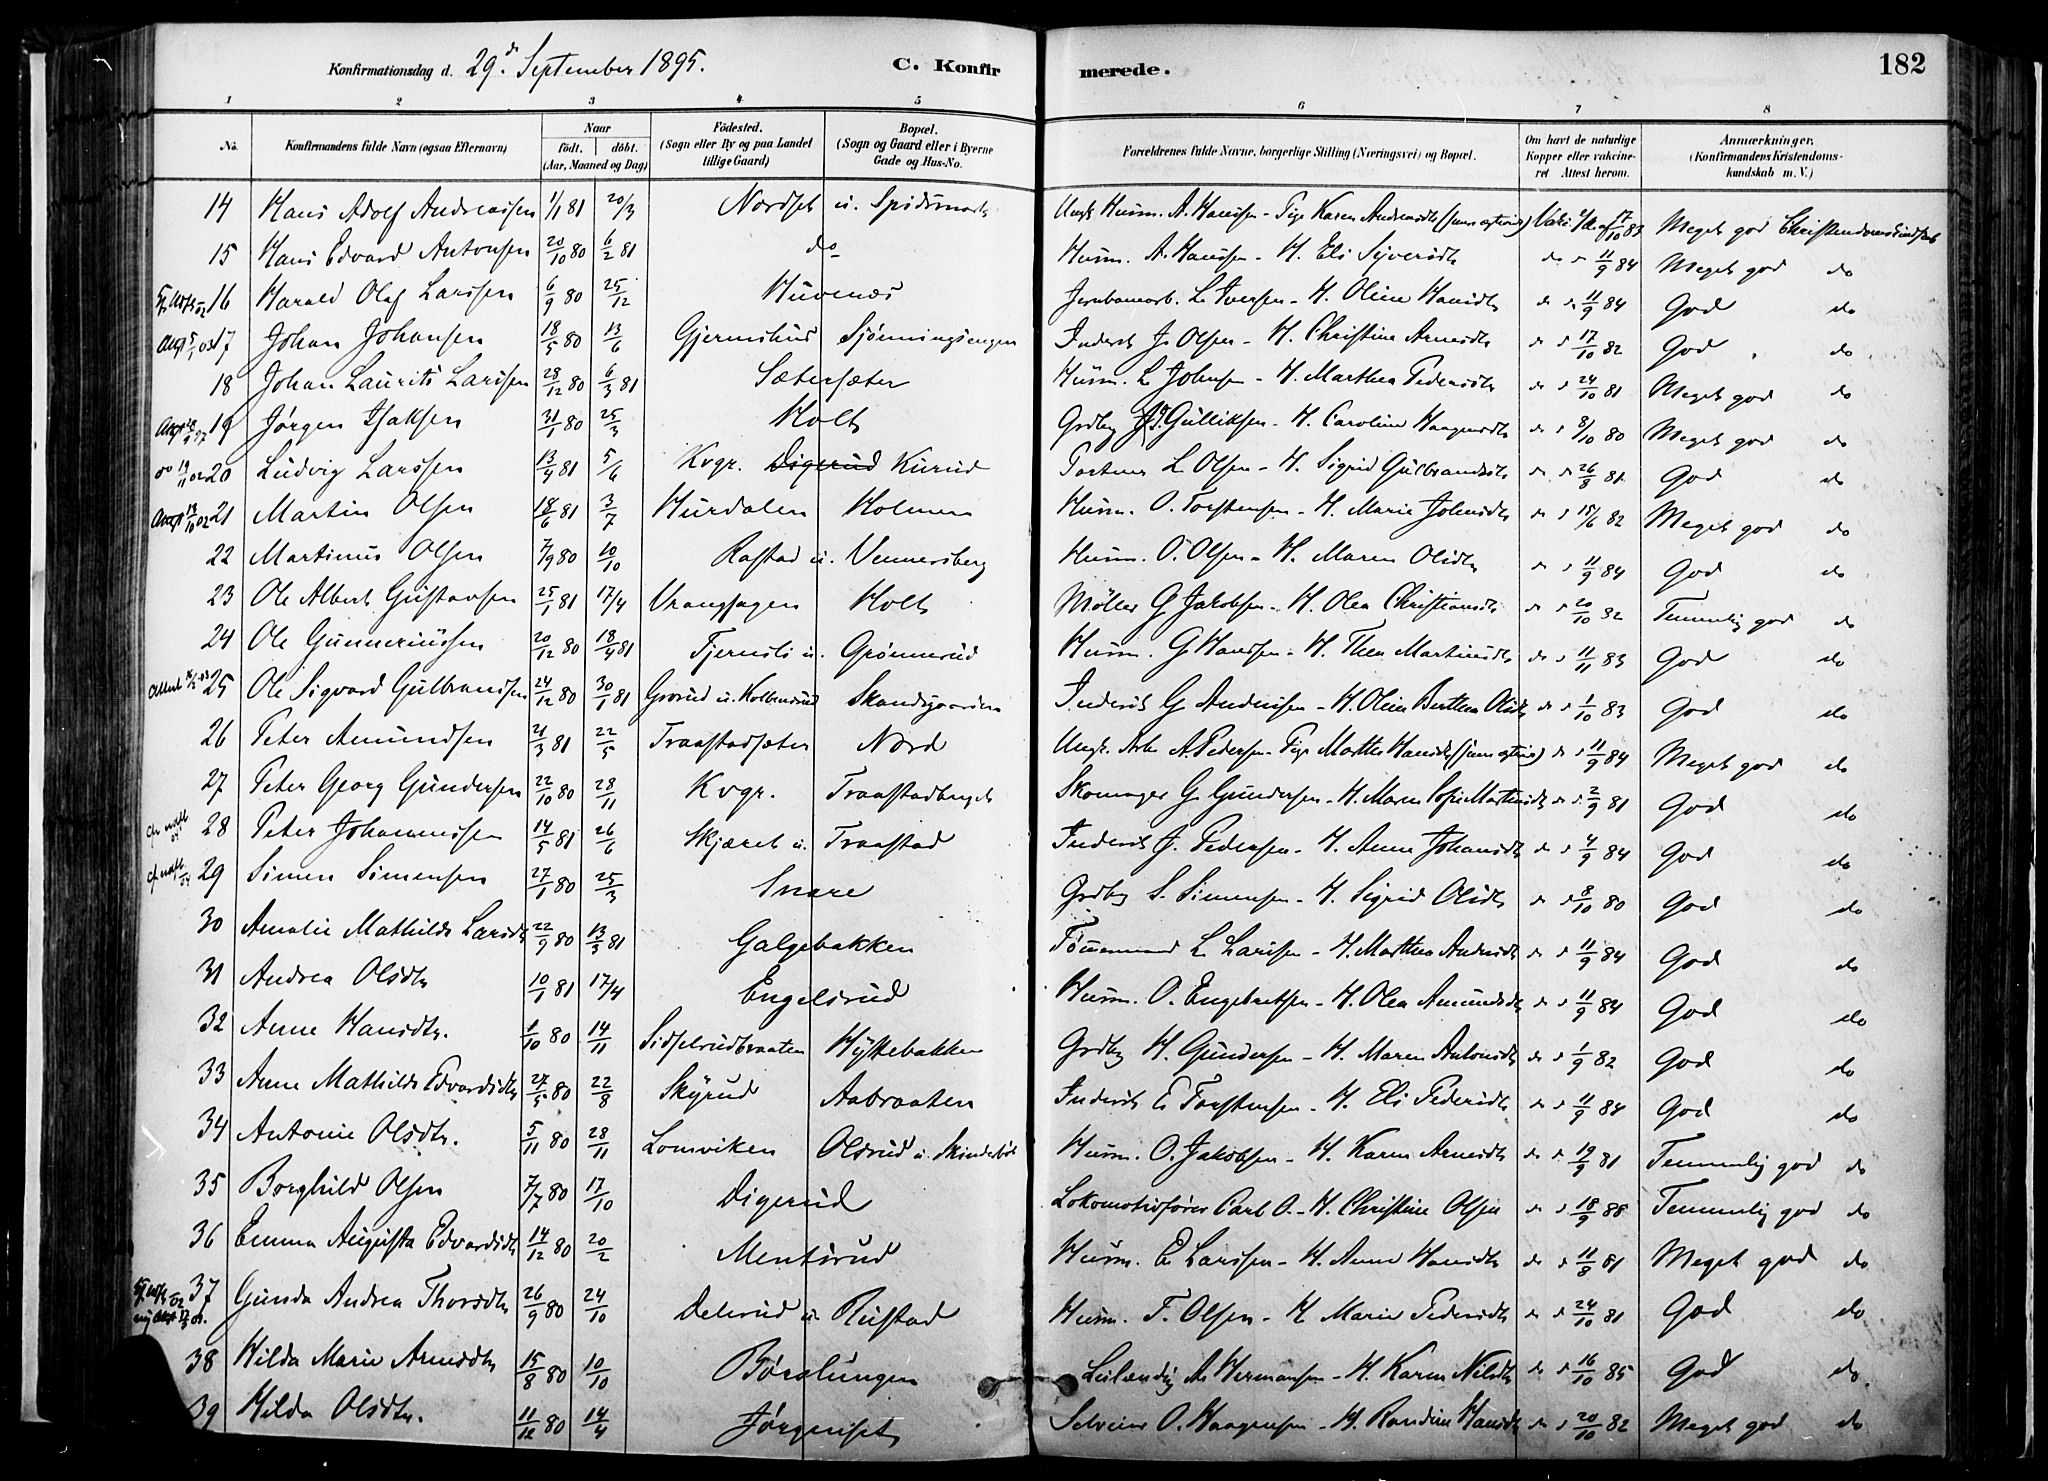 Konfirmationsdag d. 29de September 1895. C. Konfir merede. 182
1 2 3 4 5 6 7 8
No. Konfirmandens fulde Navn (ogsaa Efternavn) Naar født. døbt. (Aar, Maaned og Dag) Födested. (Sogn eller By og paa Landet tillige Gaard) Bopæl. (Sogn og Gaard eller i Byerne Gade og Hus-No. Forældrenes fulde Navne, borgerlige Stilling (Næringsvei) og Bopæl. Om havt de naturlige Kopper eller vakcineret Attest herom. Anmærkninger. (Konfirmandens Kristendomskundskab m. V.)
14 Hans Adolf Andreassen 1/1 81 20/3 Nordset u. Ungk. Husm. A. Hanssen - Pige Karen 17/10 83 Meget god Christendomskundskab
15 Hans Edvard Antonsen 20/10 80 6/2 81 do Husm. A. Hanssen - H. Eli Syversdtr 11/9 84 Meget god do
16 Harald Olaf Larssen 6/9 80 25/12 Huvenæs Jernbanearb. L. Iversen - H. Oline Hansdtr 11/9 84 God do
17 Johan Johansen 18/5 80 13/6 Gjermshus Sjønningsengen Inderst J. Olsen - H. Christine Arnesdtr 17/10 82 God do
18 Johan Laurits Larssen 28/12 80 6/3 81 Sætersæter Husm. L. Johnsen - H. Marthea Pedersdtr 24/10 81 Meget god do
19 Jørgen Isaksen 31/1 80 25/3 Holt Grdbg I. Gulliksen - H. Caroline Haagensdtr 8/10 80 Meget god do
20 Ludvig Larssen 13/4 81 5/6 Kvgr. Digerud Kurud L. Olsen - H. Sigrid Gulbrandsdtr 26/8 81 God do
21 Martin Olsen 18/6 81 3/7 Hurdalen Holmen Husm. O. Torstensen - H. Marie Johnsdtr 15/6 82 Meget god do
22 Martinus Olsen 7/9 80 10/10 Rastad u. Vennersberg Husm. O. Olsen - H. Maren Olsdtr 11/9 84 God do
23 Ole Albert Gustavsen 25/1 81 17/4 Vrangsagen Holt Møller G. Jakobsen - H. Olea Christiansdtr 20/10 82 Temmelig god do
24 Ole Gunneriussen 20/12 80 18/4 81 Tjernsli u. Grønnerud Husm. G. Hanssen - H. Thea Martinsdtr 11/11 83 God do
25 Ole Sigvard Gulbrandsen 24/12 80 30/1 81 Grorud u. Kolbensrud Skandsgaarden Inderst G. Andersen - H. Oline Berthea Olsdtr 1/10 83 God do
26 Peter Amundsen 21/3 81 22/5 Traastadsæter Nord Ungk. Arb. A. Pedersen - Pige Marthe Hansdtr 11/9 84 Meget god do
27 Peter Georg Gundersen 22/10 80 28/11 Kvgr. Traastadberget Skomager G. Gundersen - H. Maren Sofie Martinsdtr 2/9 81 God do
28 Peter Johannessen 14/5 81 26/6 Skjæret u. Traastad Inderst J. Pedersen - H. Anne Johansdtr 4/9 84 God do
29 Simen Simensen 27/1 80 25/3 Snare Grdbg S. Simensen - H. Sigrid Olsdtr 8/10 80 God do
30 Amalie Mathilde Larsdtr 22/9 80 13/3 81 Galgebakken Tømmermand L. Larssen - H. Marthea Andersdtr 11/9 84 God do
31 Andrea Olsdtr 10/1 81 17/4 Engelsrud Husm. O. Engebretsen - H. Olea Amundsdtr 11/9 84 God do
32 Anne Hansdtr. 1/10 80 14/11 Sidselrudbraaten Hyttebakken Grdbg H. Gundersen - H. Maren Antonsdtr 1/9 82 God do
33 Anne Mathilde Edvardsdtr 27/5 80 22/8 Skyrud Aabraaten Inderst E. Torstensen - H. Eli Pedersdtr 11/9 84 God do
34 Antonie Olsdtr. 5/11 80 28/11 Lomviken Olsrud u. Husm. O. Jakobsen - H. Karen Arnesdtr 19/9 81 Temmelig god do
35 Borghild Olsen 7/7 80 17/10 Digerud Lokomotivfører Carl O. - H. Christine Olsen 18/9 88 Temmelig god do
36 Emma Augusta Edvardsdtr 14/12 80 20/2 Mentsrud Husm. E. Larssen - H. Anne Hansdtr 11/8 81 Meget god do
37 Gunda Andrea Thorsdtr 26/9 80 24/10 Delerud u. Rustad Husm. T. Olsen - H. Marie Pedersdtr 24/10 81 God do
38 Hilda Marie Arnesdtr 15/8 80 10/10 Børslungen Leilænding A. Hermansen - H. Karen Nilsdtr 16/10 85 God do
39 Hilda Olsdtr. 11/12 80 14/4 Jørgenset Selveier O. Haagensen - H. Randine Hansdtr 20/10 82 Meget god do